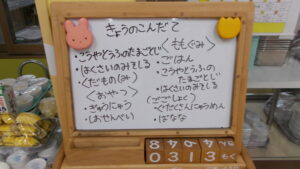 きょうのこんだて
・こうやとうふのたまごとじ
・はくさいのみそしる
・くだもの(み)
〈おやつ〉
・ぎゅうにゅう
・おせんべい
〈ももぐみ〉
・ごはん
・こうやとうふの
たまごとじ
・はくさいのみそしる
(ごごしょく)
・ぐだくさんにゅうめん
・ばなな